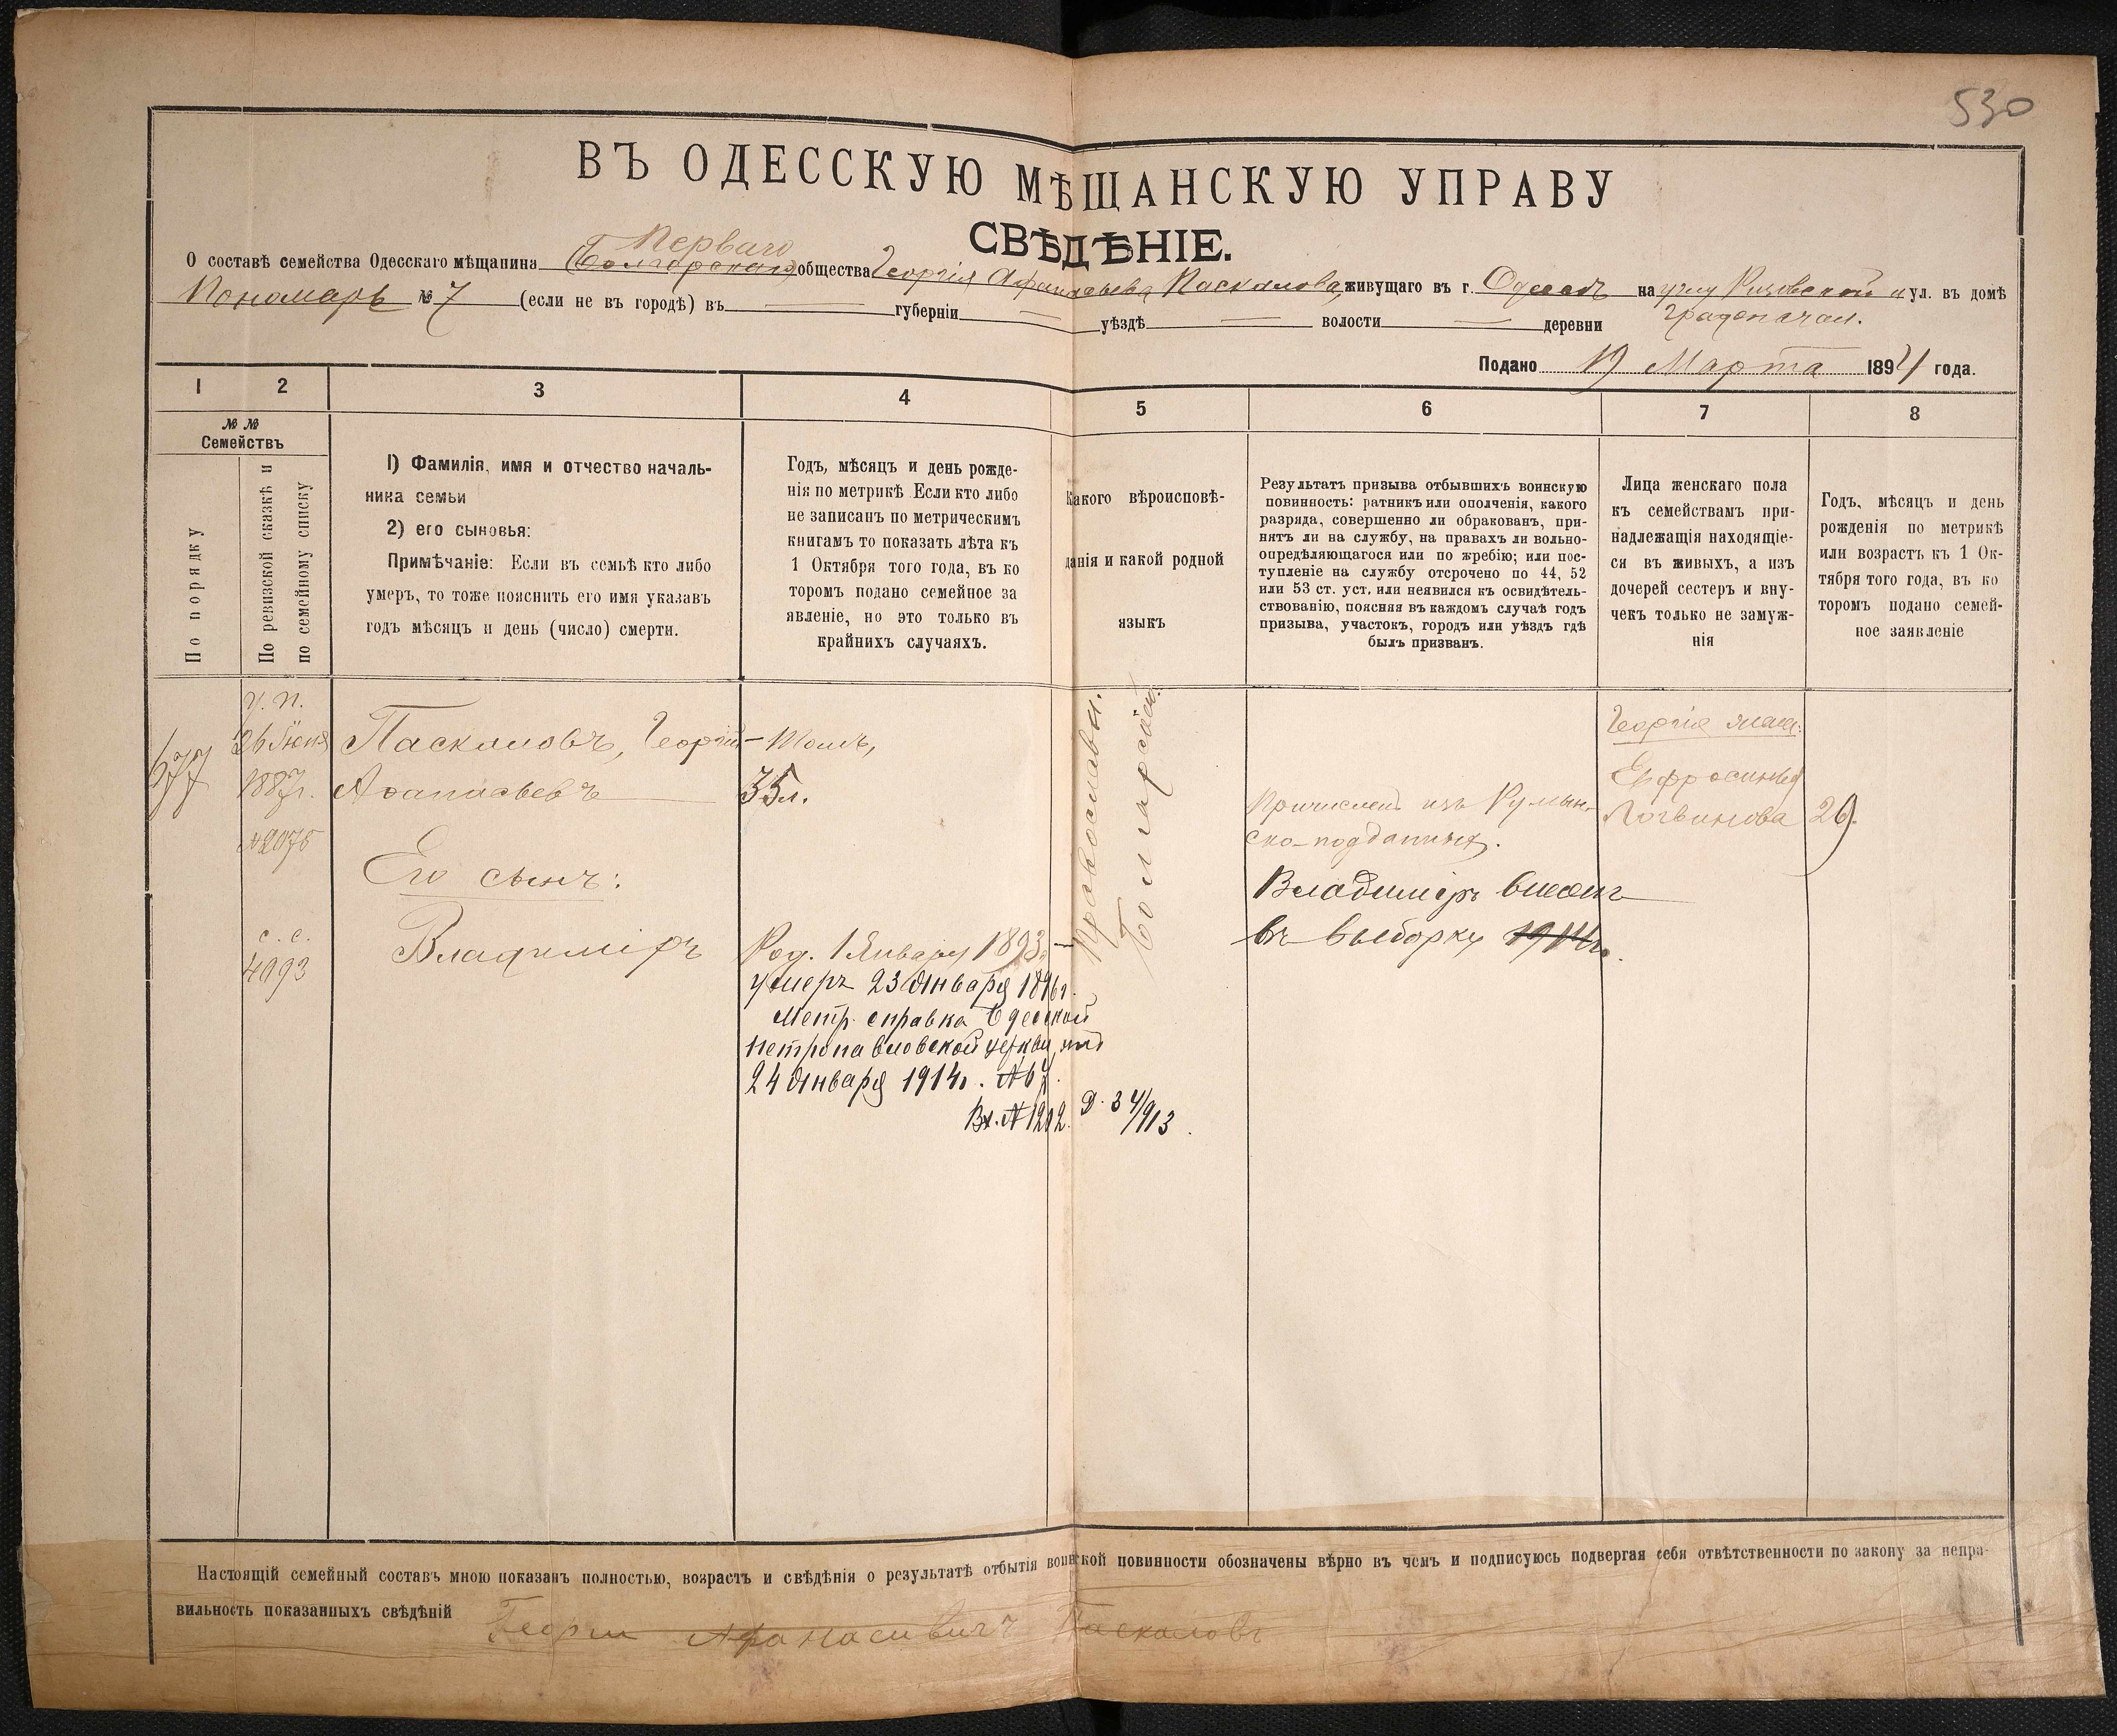 530
ВЪ ОДЕССКУЮ МѢЩАНСКУЮ УПРАВУ
СВѢДѢНІЕ.
Перваго
О составѣ семейства Одесскаго мѣщанина (Болгарскаго) общества Георгія Афанасьева Паскалова, живущаго въ г. Одессѣ на углу Ризовской и ул. въ домѣ
Градоначал.
Пономарь № 7 (если не въ городѣ) въ губерніи уѣздѣ волости деревни
Подано 19 Марта 1894 года.
1 2 3 4 5 6 7 8
№ №
Семействъ
По порядку
По ревизской сказкѣ и
по семейному списку
1) Фамилія, имя и отчество началь-
ника семьи
2) его сыновья:
Примѣчаніе: Если въ семьѣ кто либо
умеръ, то тоже пояснить его имя указавъ
годъ мѣсяцъ и день (число) смерти.
Годъ, мѣсяцъ и день рожде-
нія по метрикѣ Если кто либо
не записанъ по метрическимъ
книгамъ то показать лѣта къ
1 Октября того года, въ ко
торомъ подано семейное за
явленіе, но это только въ
крайнихъ случаяхъ.
Какого вѣроисповѣ-
данія и какой родной
языкъ
Результатъ призыва отбывшихъ воинскую
повинность: ратникъ или ополченія, какого
разряда, совершенно ли обракованъ, при-
нятъ ли на службу, на правахъ ли вольно-
опредѣляющагося или по жребію; или пос-
тупленіе на службу отсрочено по 44, 52
или 53 ст. уст. или неявился къ освидѣтель-
ствованію, поясняя въ каждомъ случаѣ годъ
призыва, участокъ, городъ или уѣздъ гдѣ
былъ призванъ.
Лица женскаго пола
къ семействамъ при-
надлежащія находящіе-
ся въ живыхъ, а изъ
дочерей сестеръ и вну-
чекъ только не замуж-
нія
Годъ, мѣсяцъ и день
рожденія по метрикѣ
или возрастъ къ 1 Ок-
тября того года, въ ко
торомъ подано семей-
ное заявленіе
677
у. п.
26 Іюня
1887г.
№ 2075
Паскаловъ, Георгій
Аѳанасьевъ
35 л.
Его сынъ:
с. с.
4993
Владиміръ
Род. 1 Января 1893
умеръ 23 Января 1896г.
Метр. справка Одесской
Петропавловской церкви
24 Января 1914г. № 67.
Вх. № 1202. Д. 34/913.
Православн.
Болгарскій
Причисленъ изъ Румын-
ско-подданных.
Владиміръ внесенъ
въ выборку 1914г.
Георгія жена:
Ефросинья
Логвинова
29.
Настоящій семейный составъ мною показанъ полностью, возрастъ и свѣдѣнія о результатѣ отбытія воинской повинности обозначены вѣрно въ чемъ и подписуюсь подвергая себя отвѣтственности по закону за непра-
вильность показанныхъ свѣдѣній Георги Афанасивичъ Паскаловъ